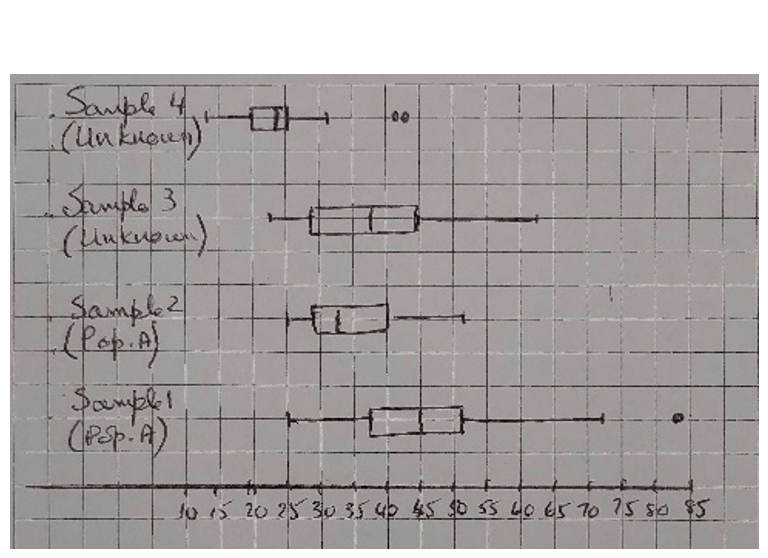 Sample 4
(Unknown)
Sample 3
(Unknown)
Sample 2
(Pop.A)
Sample 1
(Pop.A)
10 15 20 25 30 35 40 45 50 55 60 65 70 75 80 85